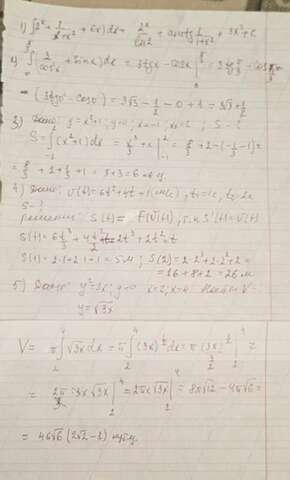 1) ∫(2ˣ + 1/(1+x²) + 6x)dx = 2ˣ/ln2 + arctg 1/(1+x²) + 3x² + C
∫(3/cos²x + sinx)dx = 3tgx - cosx | = 3tg π/3 - cos π/3 -
- (3tg0 - cos0) = 3√3 - 1/2 - 0 + 1 = 3√3 + 1/2
3) Дано: y = x²+1; y=0; x=-1; x=2; S-?
S = ∫(x²+1)dx = x³/3 + x | = 8/3 + 2 - (-1/3 - 1) =
= 8/3 + 2 + 1/3 + 1 = 3+3 = 6 кв.ед
4) Дано: v(t) = 6t²+4t+1 (м/с), t₁=1c, t₂=2c
S-?
решение: S(t) = F(v(t)), т.к S'(t) = v(t)
S(t) = 6t³/3 + 4t²/2 + t = 2t³ + 2t² + t
S(1) = 2·1+2·1+1 = 5м; S(2) = 2·2³+2·2²+2 =
= 16+8+2 = 26 м
5) Дано: y² = 3x; y=0 x=2; x=4 Найти V-
y = √3x
V = π∫√3x dx = π∫(3x)^½ dx = π (3x)^(3/2) / (3/2) | =
= 2π·3x√3x / 3 | = 2πx√3x | = 8π√12 - 4π√6 =
= 4π√6 (2√2 - 1) куб.ед